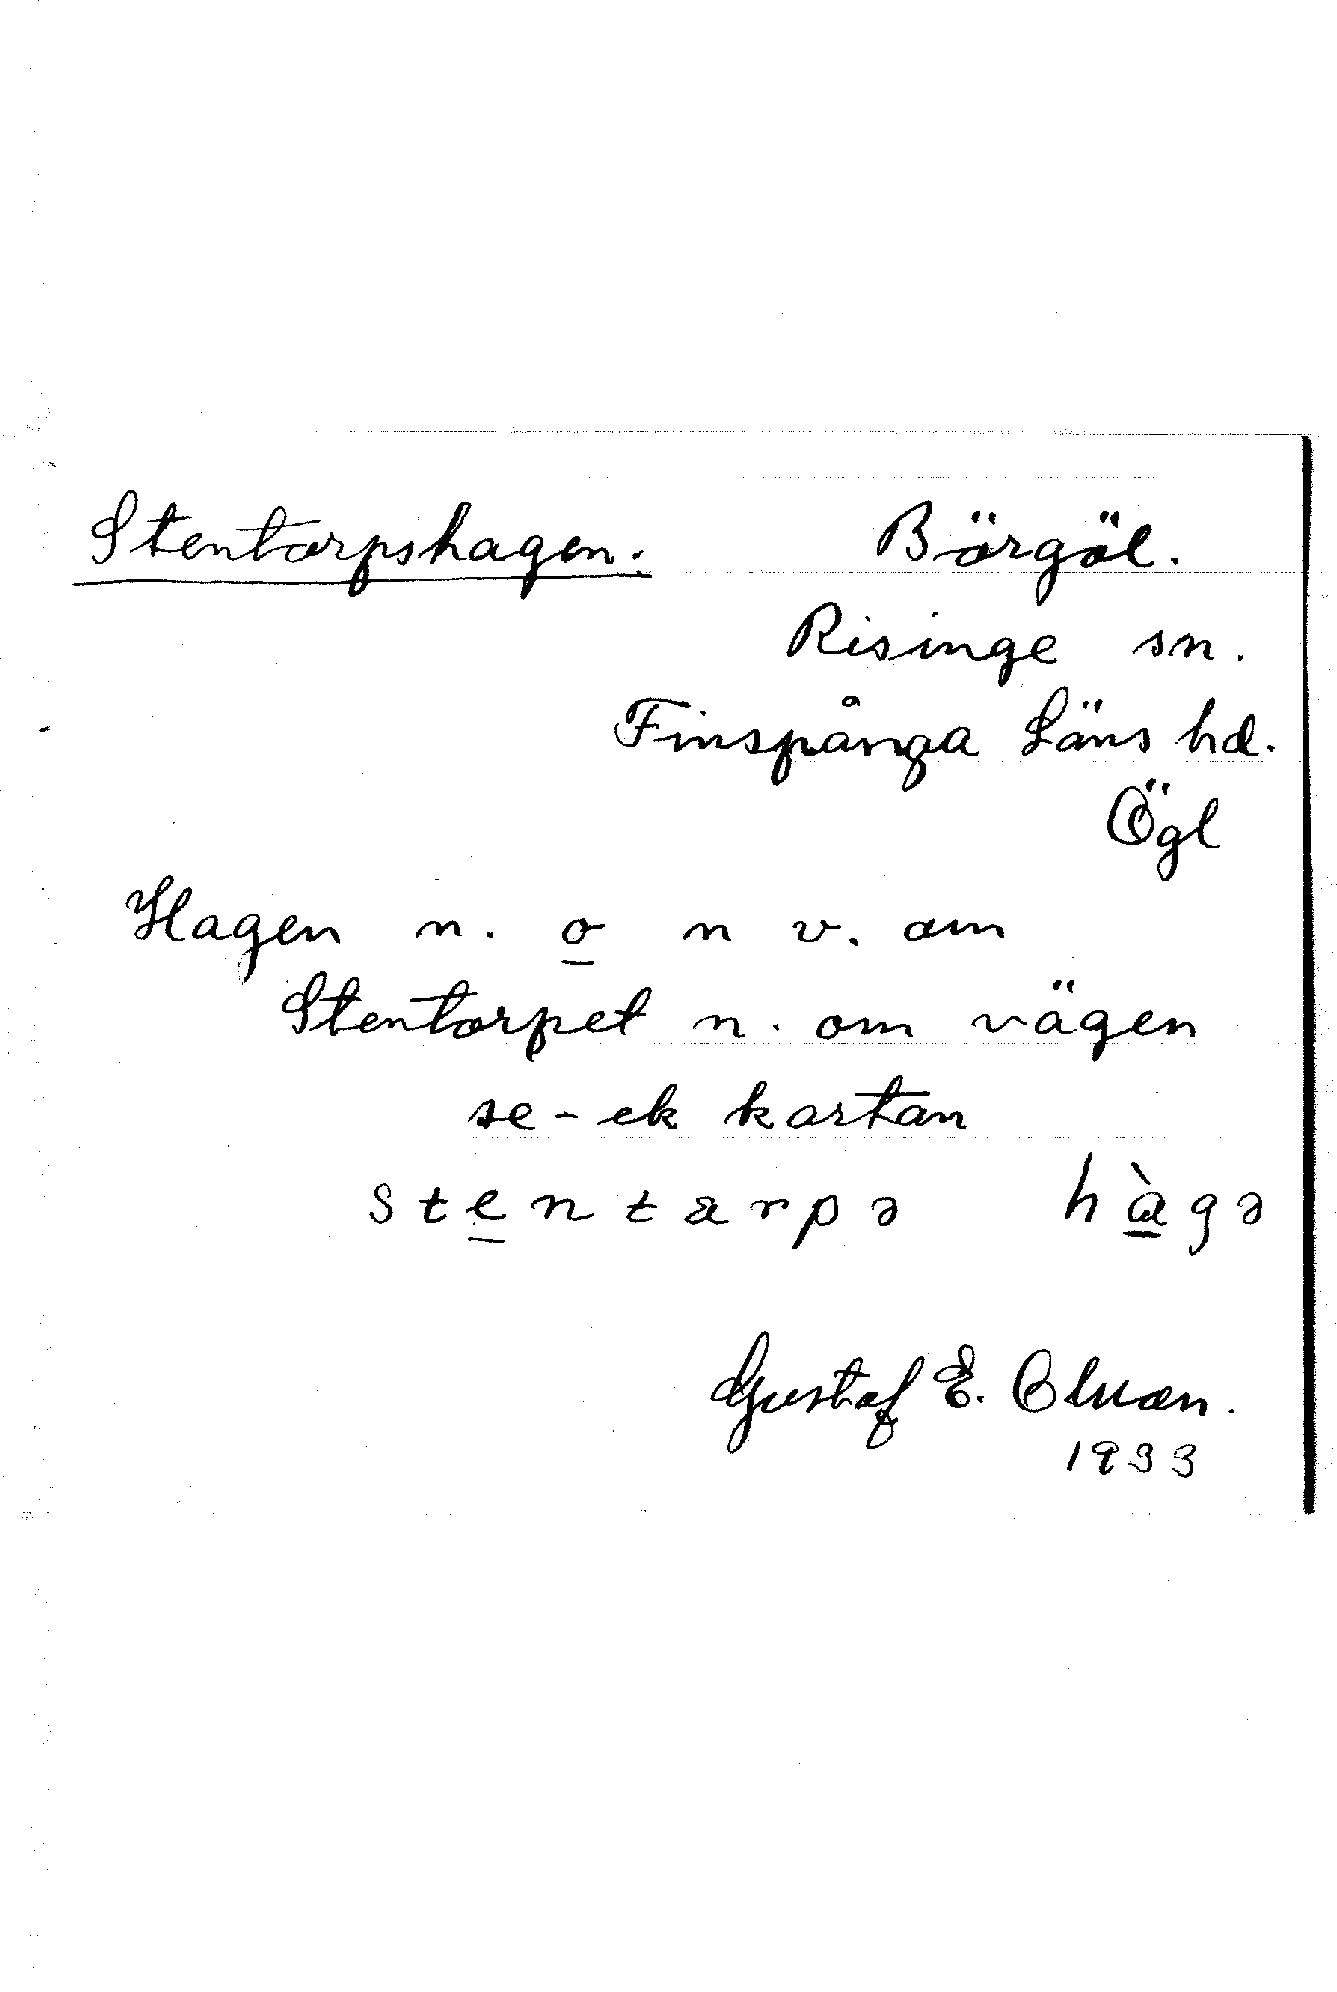 Stentorpshagen. Börgöl.
Risinge sn.
Finspånga Läns hd.
Ögl
Hagen n. o n v. om
Stentorpet n. om vägen
se - ek kartan
stentarpə hàgə
Gustaf E.
1933